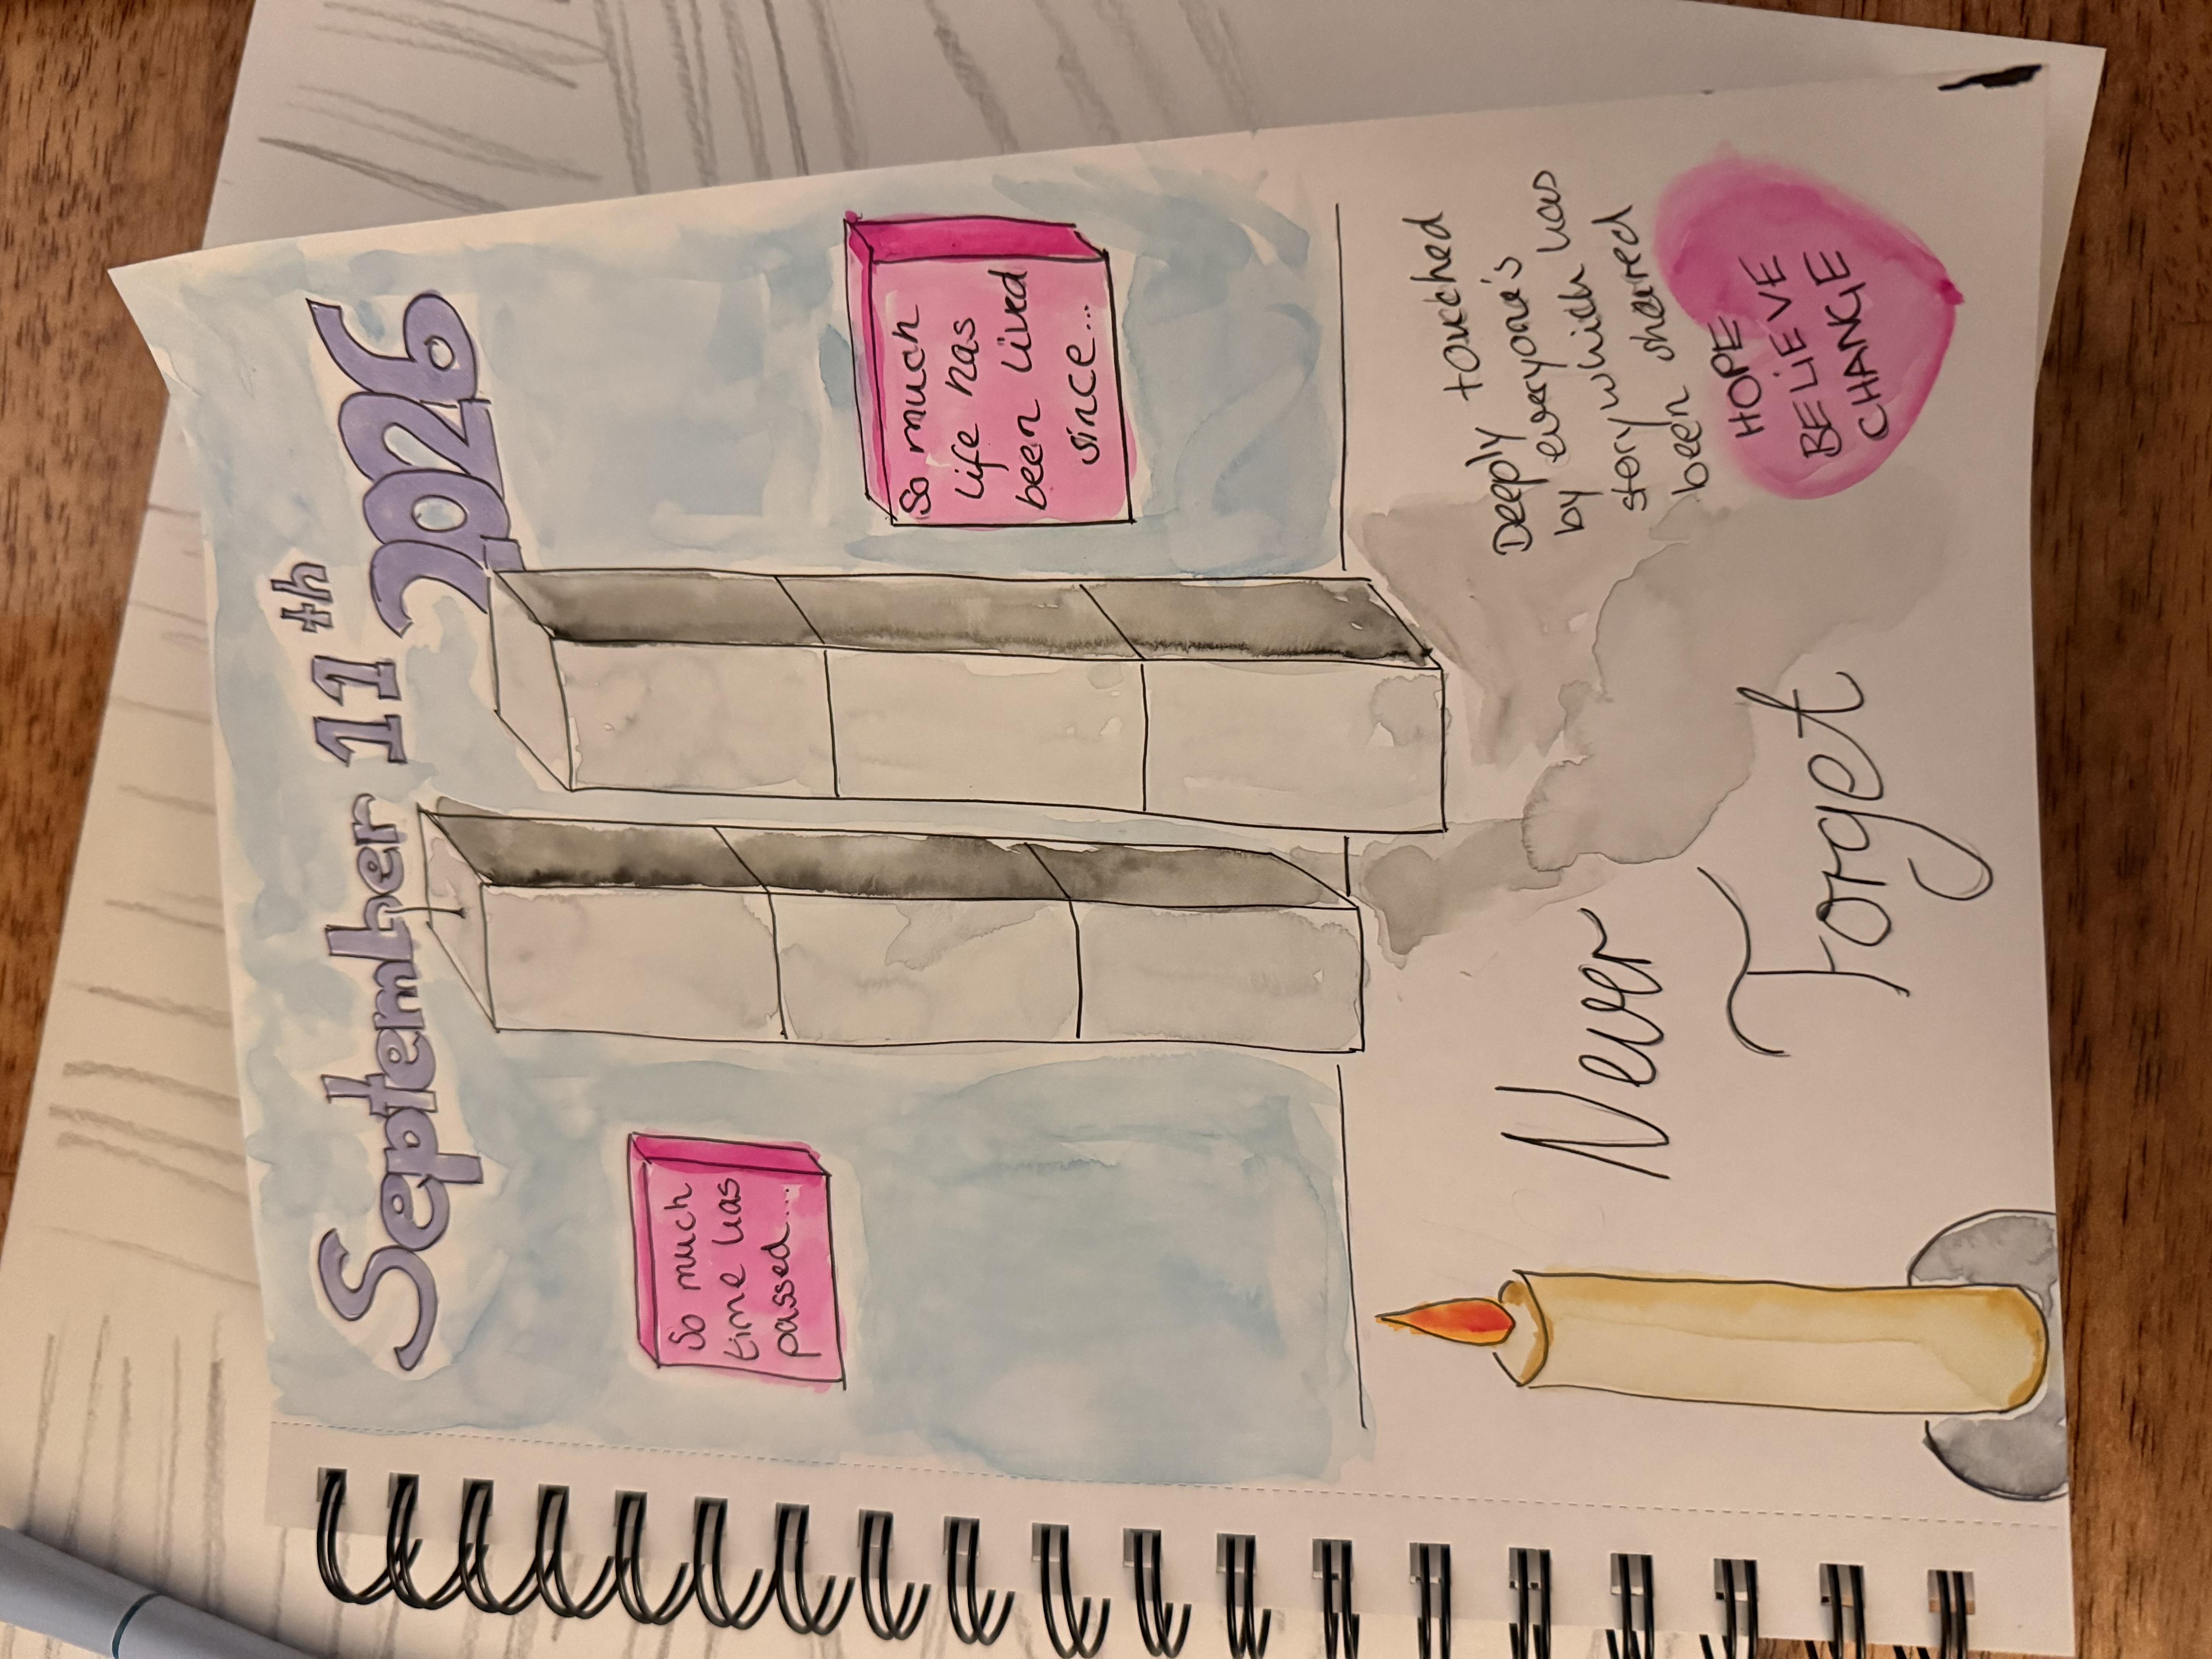 September 11th
2026
So much
time has
passed...
So much
life has
been lived
since...
Deeply touched
by everyone's
story which has
been shared
HOPE
BELIEVE
CHANGE
Never
Forget